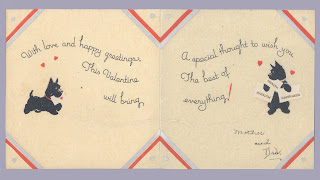 With love and happy greetings,
This Valentine
will bring
A special thought to wish you
The best of
everything!
Mother
and
Dad.